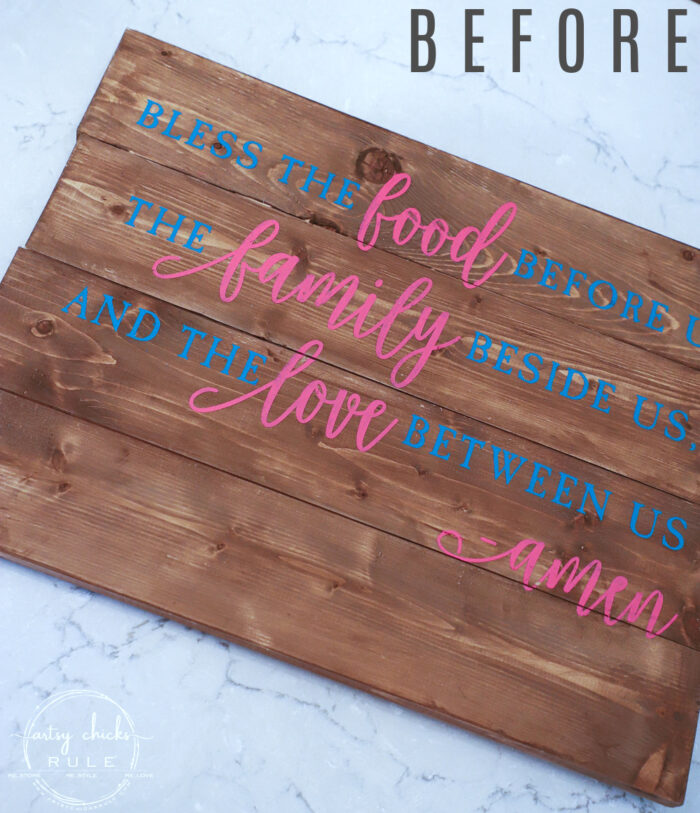 BEFORE
BLESS THE food BEFORE U
THE family BESIDE US,
AND THE love BETWEEN US
-amen
artsy chicks
RULE